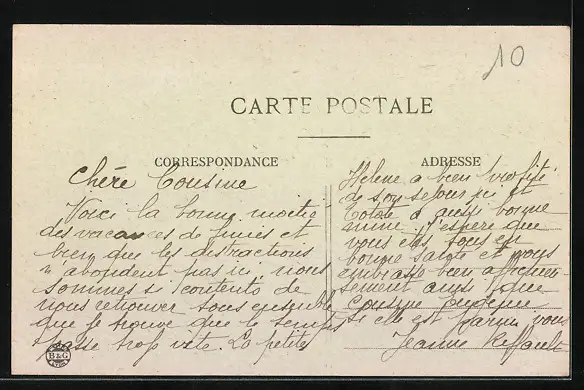 10
CARTE POSTALE
CORRESPONDANCE
ADRESSE
Chère Cousine
Voici la bonne moitié
des vacances de finies et
bien que les distractions
n'abondent pas ici, nous
sommes si contents de
nous retrouver tous ensemble
que je trouve que le temps
passe trop vite. La petite
Helene a bien profité
de son séjour ici et
Totote a aussi bonne
mine. J'espère que
vous êtes tous en
bonne santé et vous
embrasse bien affectueu
sement ainsi que
cousine Eugénie
si elle est parmi vous
Jeanne
B&G